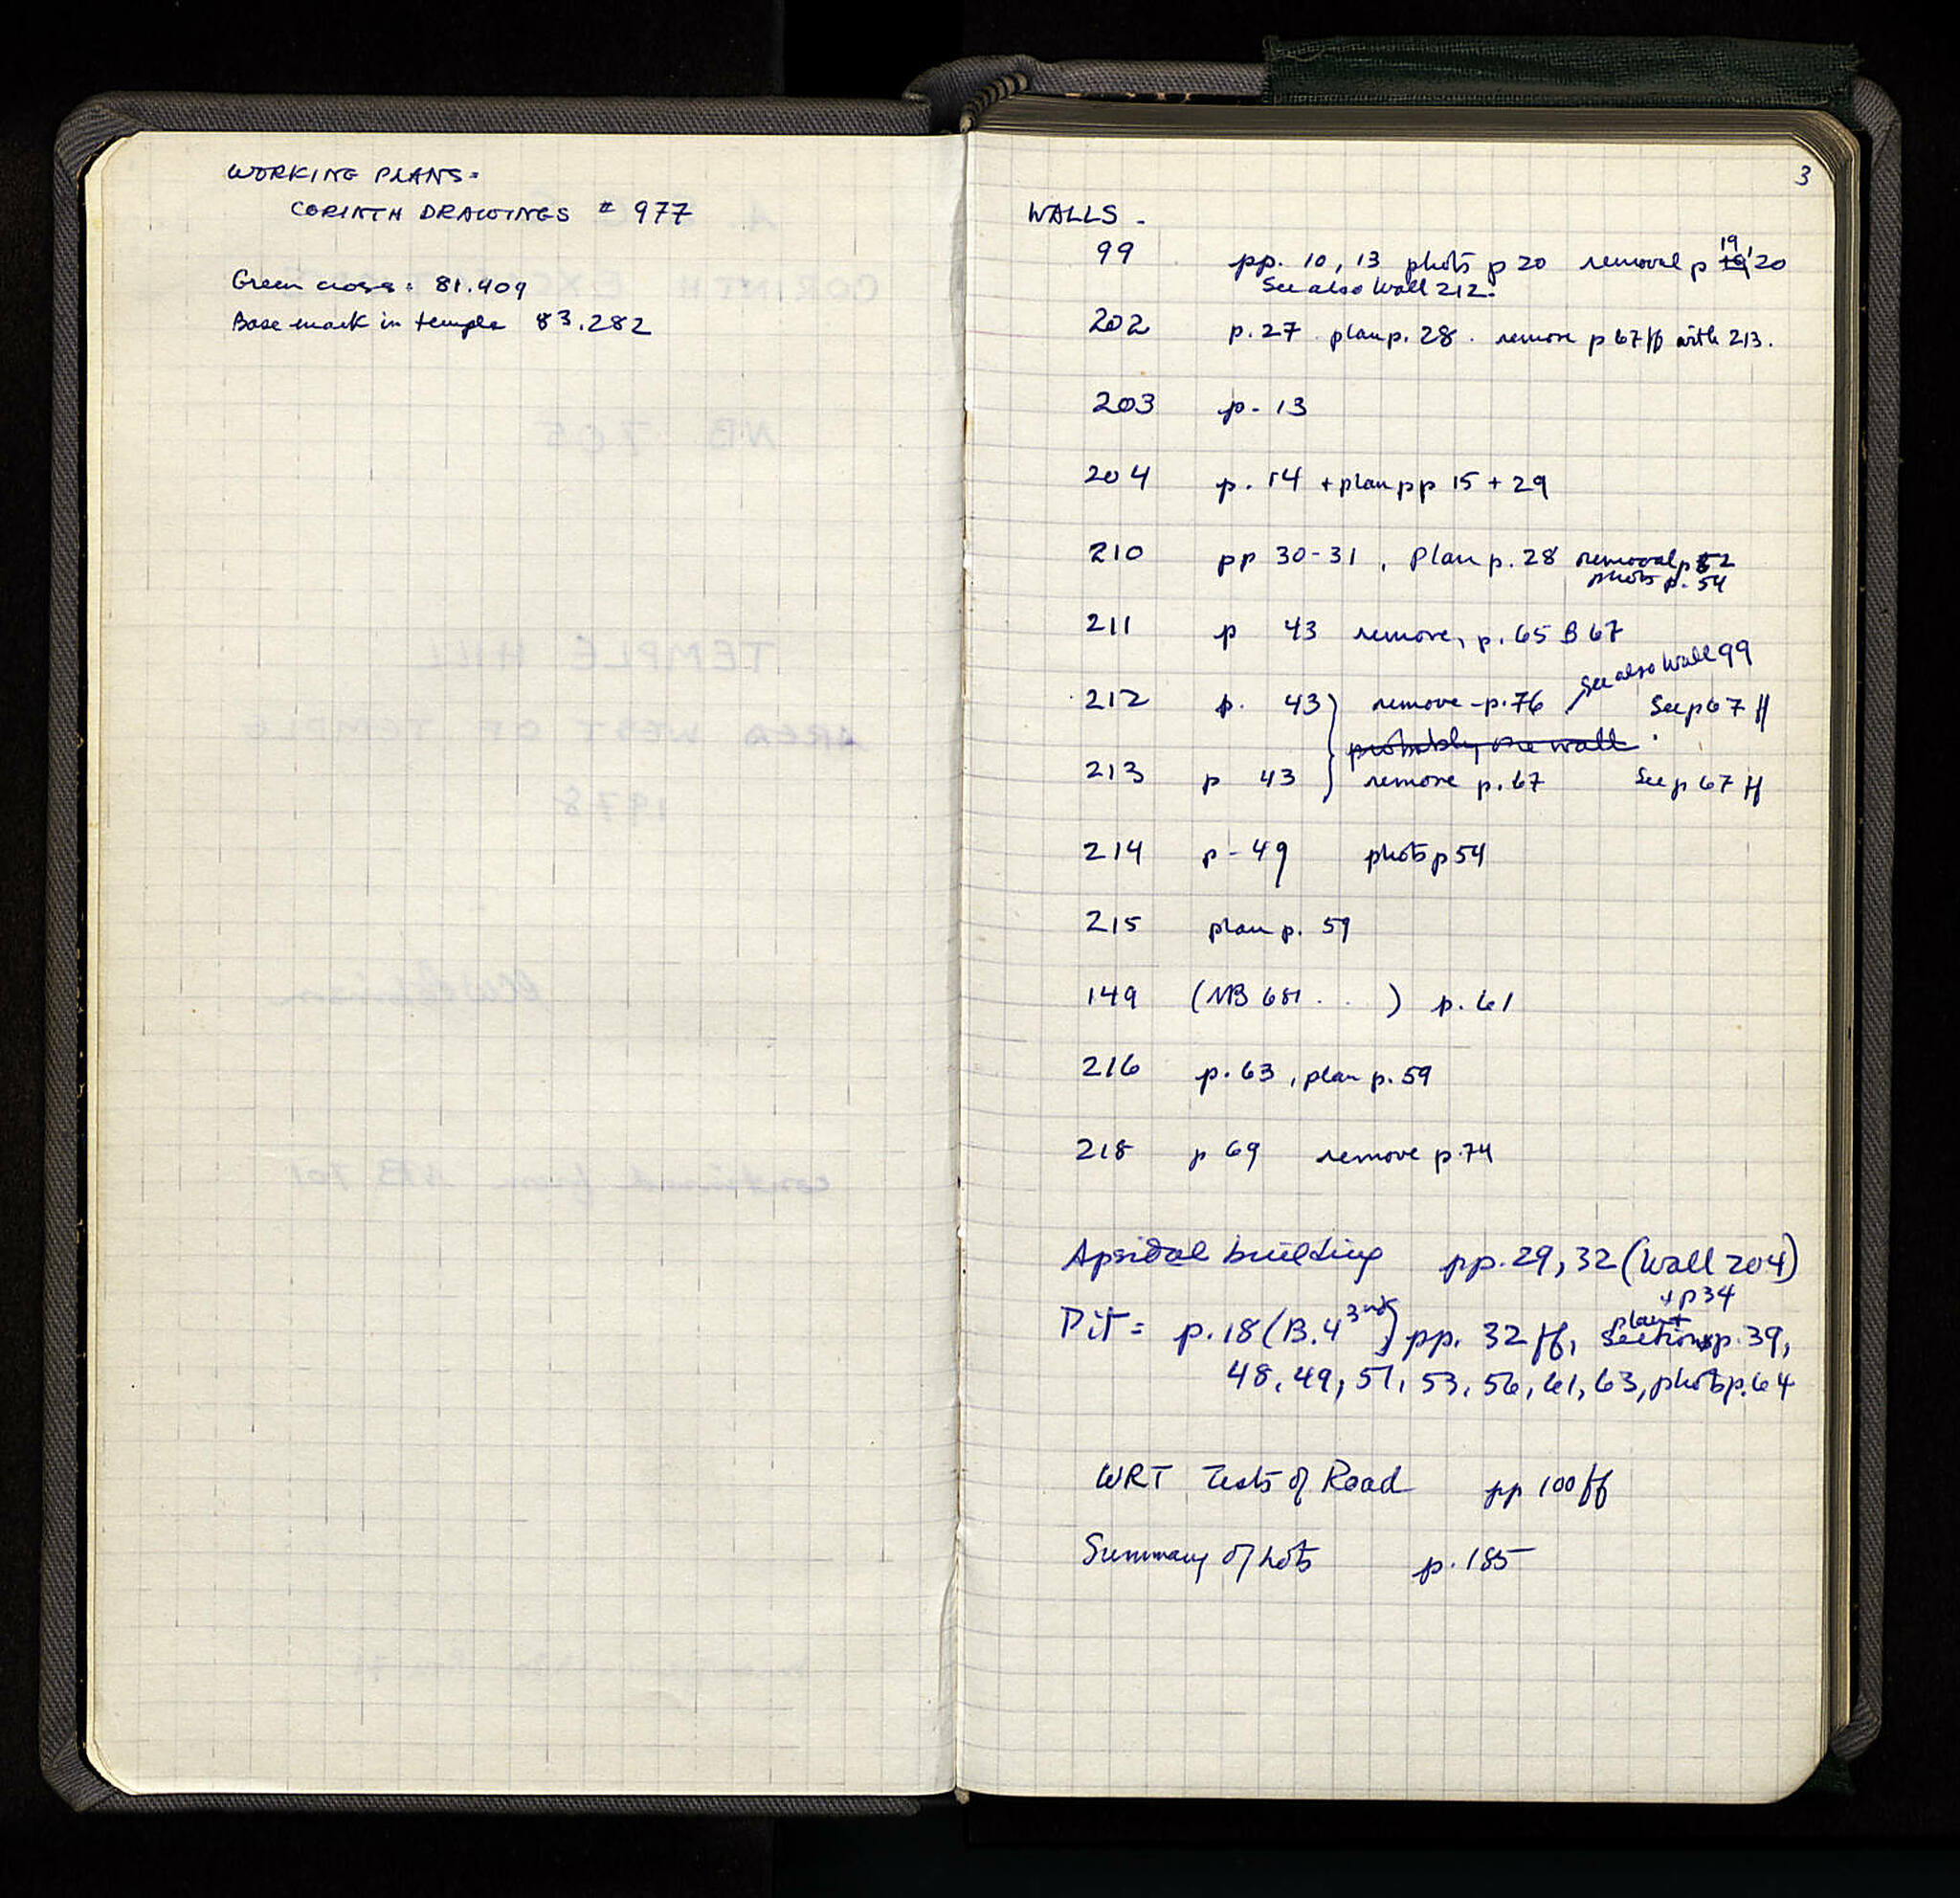 WORKING PLANS =
CORINTH DRAWINGS # 977
Green cross = 81.409
Base mark in temple 83.282
3
WALLS -
99 pp. 10, 13 photo p 20 removal p 19, 20
See also Wall 212.
202 p. 27. plan p. 28. remove p 67 ff with 213.
203 p. 13
204 p. 14 + plan pp 15 + 29
210 pp 30-31, Plan p. 28 removal p 52
photo p. 54
211 p 43 remove, p. 65 B 67
See also Wall 99
212 p. 43 remove - p. 76 See p 67 ff
probably one wall
213 p 43 remove p. 67 See p 67 ff
214 p - 49 photo p 54
215 plan p. 59
149 (NB 681 . . ) p. 61
216 p. 63, plan p. 59
218 p 69 remove p. 74
Apsidal building pp. 29, 32 (Wall 204)
+ p 34
Pit = p. 18 (B. 4 3rd) pp. 32 ff, plan + sections p. 39,
48, 49, 51, 53, 56, 61, 63, photo p. 64
WRT Tests of Road pp 100 ff
Summary of Lots p. 185